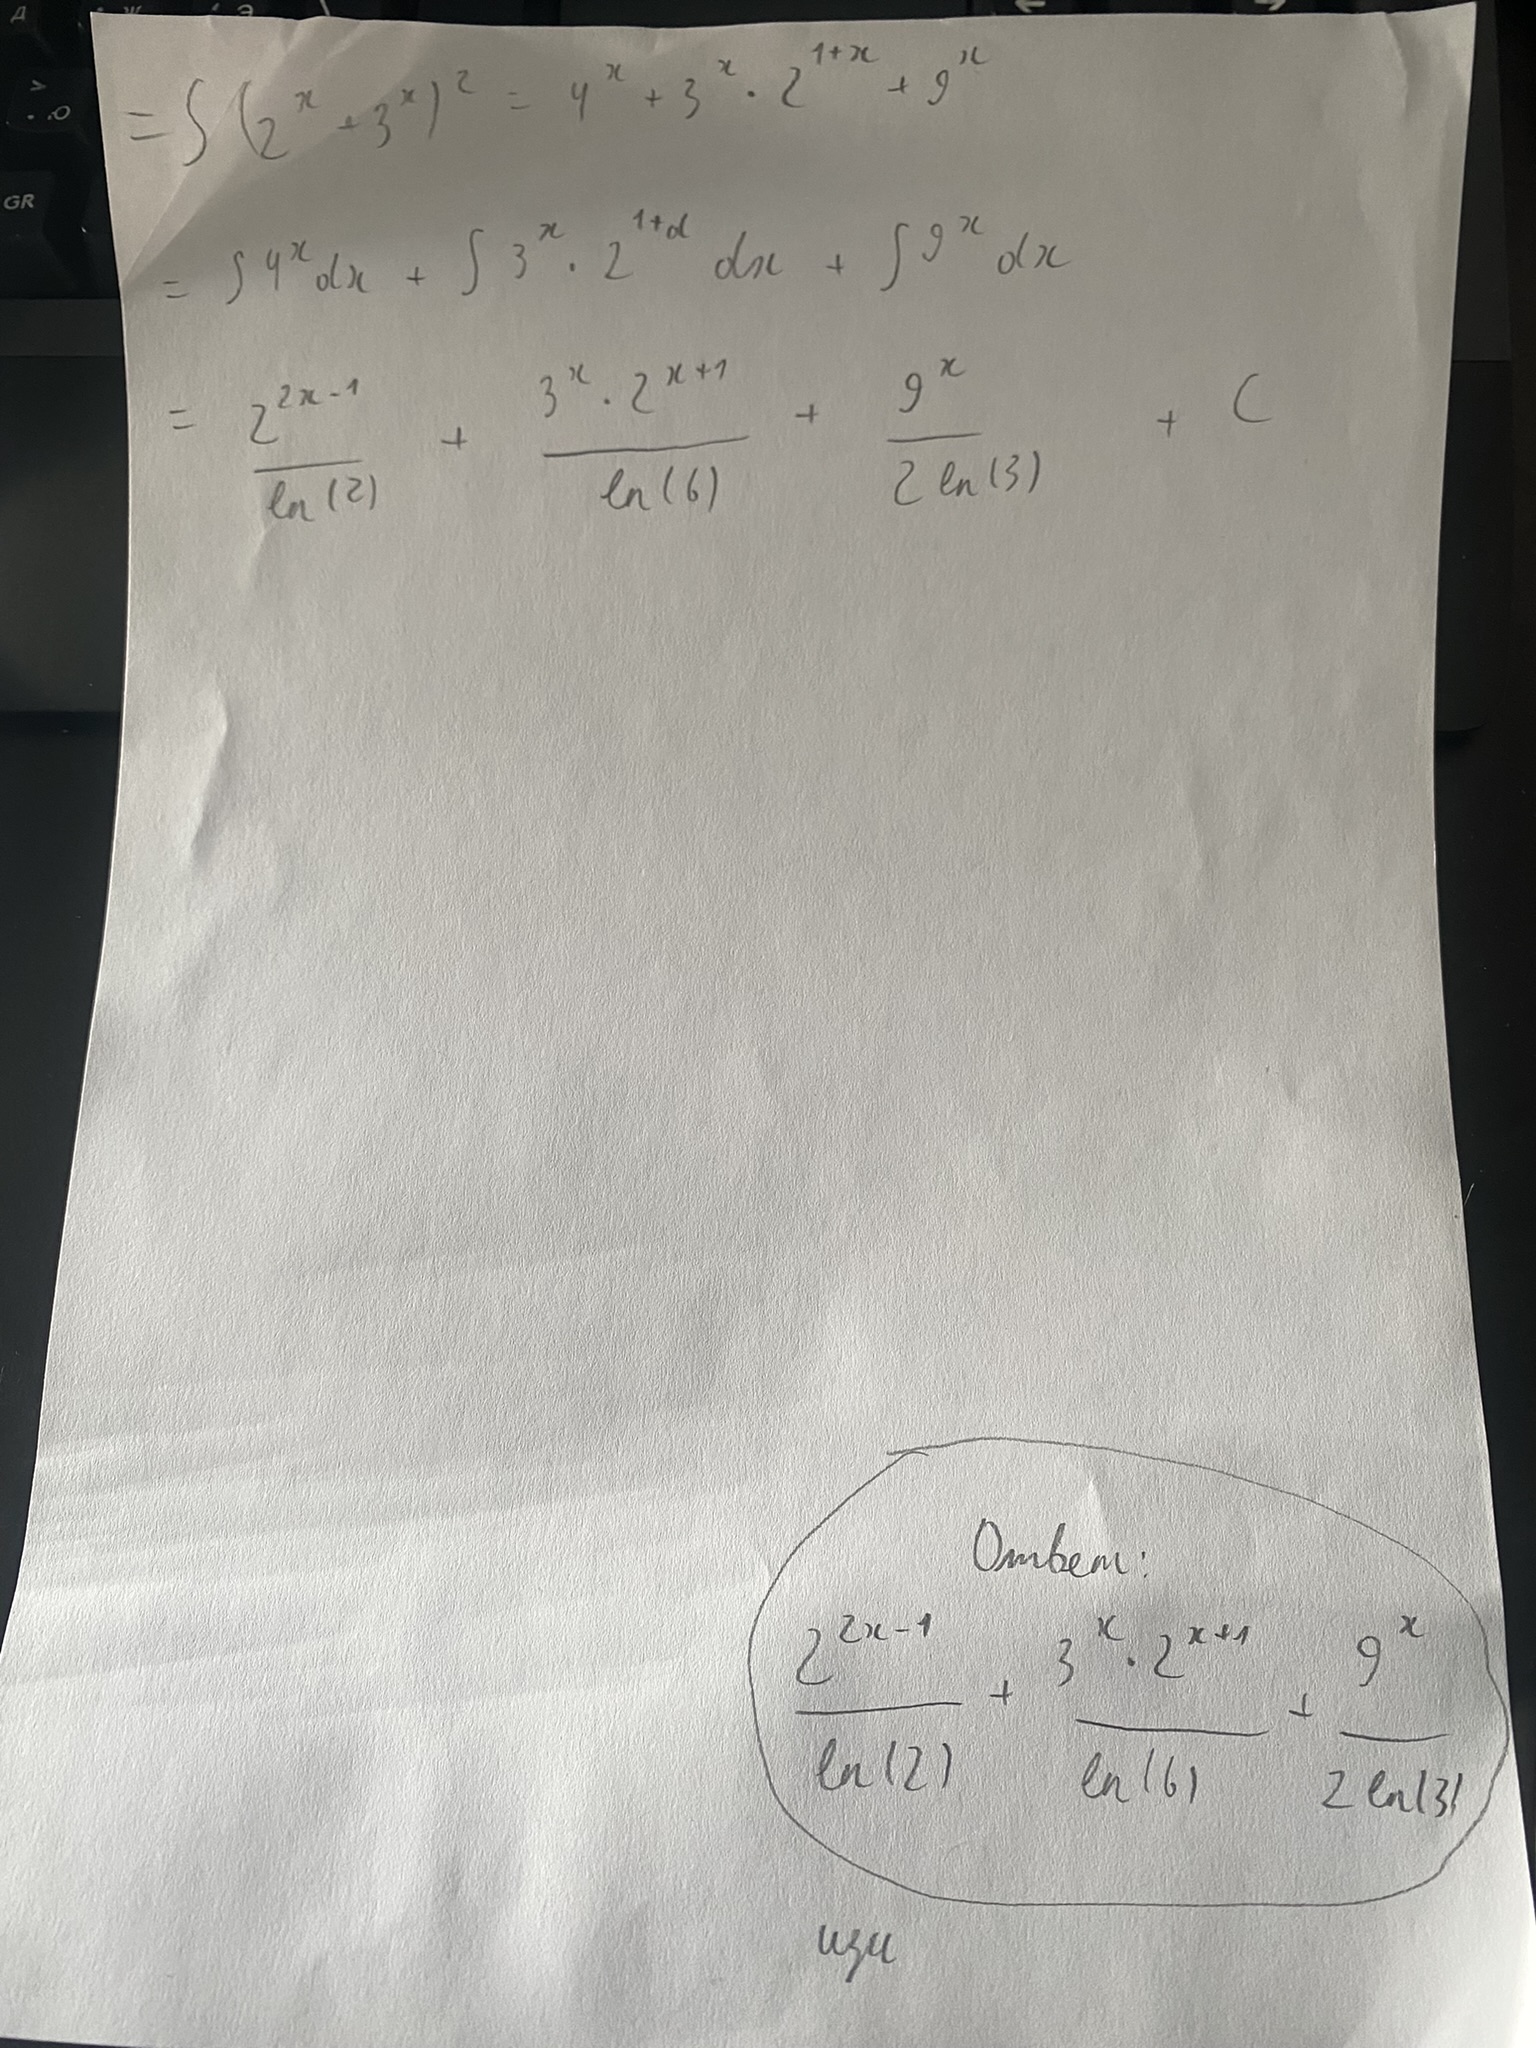 = ∫ (2^x + 3^x)^2 = 4^x + 3^x · 2^{1+x} + 9^x
= ∫ 4^x dx + ∫ 3^x · 2^{1+d} dx + ∫ 9^x dx
= \frac{2^{2x-1}}{ln(2)} + \frac{3^x · 2^{x+1}}{ln(6)} + \frac{9^x}{2 ln(3)} + C
Ответ:
\frac{2^{2x-1}}{ln(2)} + \frac{3^x · 2^{x+1}}{ln(6)} + \frac{9^x}{2 ln(3)}
изи
GR